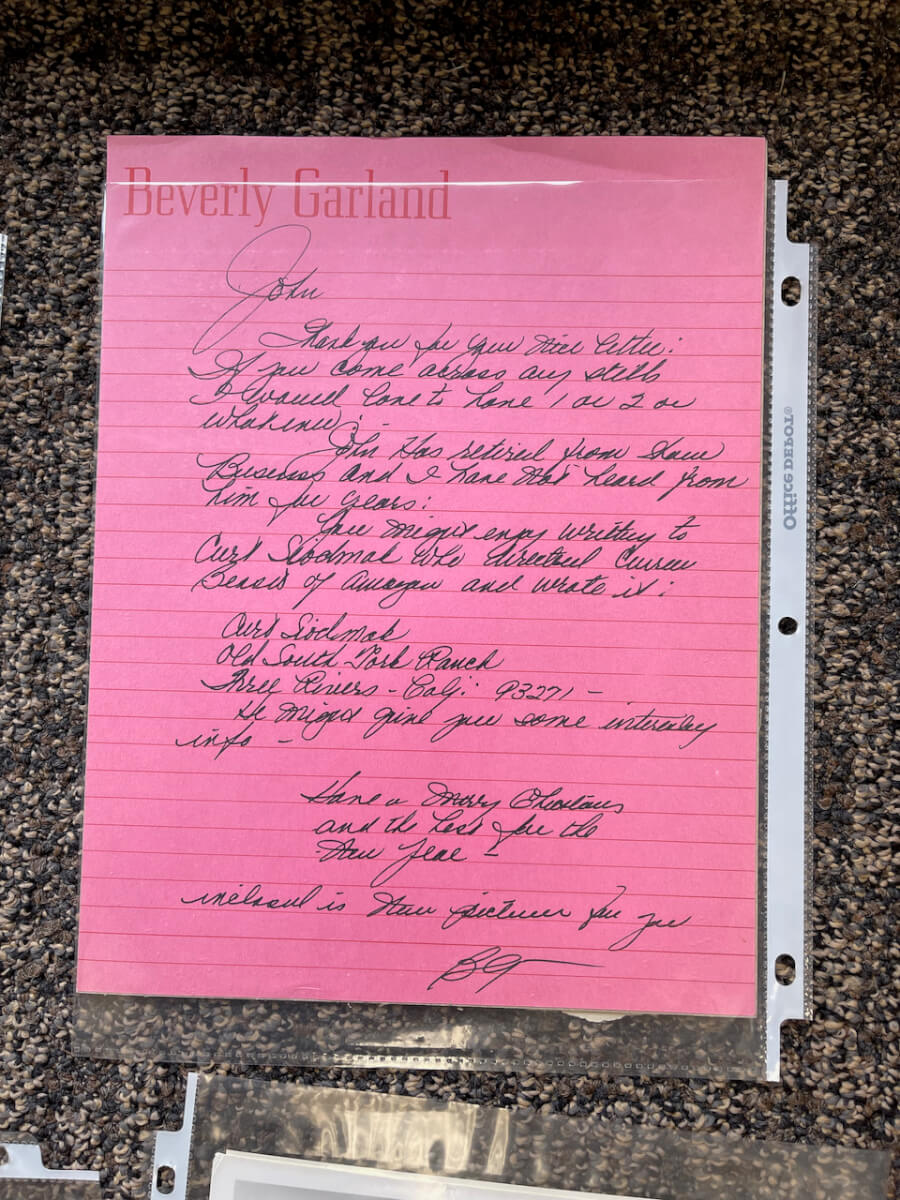 Beverly Garland
John
Thank you for your nice letter:
If you come across any stills
I would love to have 1 or 2 or
whatever:
John has retired from Show
Business and I have not heard from
him for years:
You might enjoy writing to
Curt Siodmak who directed Curucu
Beast of Amazon and wrote it:
Curt Siodmak
Old South Fork Ranch
Three Rivers - Calif: 93271 -
He might give you some
info -
Have a Merry Christmas
and the best for the
New Year -
inclosed is new picture for you
BG
Office DEPOT®